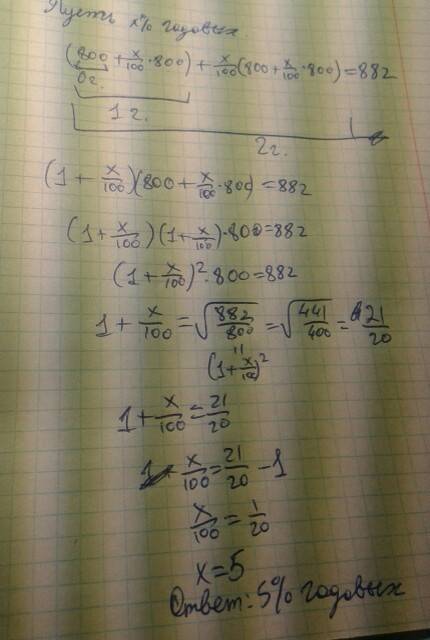 Пусть x% годовых
(800 + x/100 · 800) + x/100 (800 + x/100 · 800) = 882
0 г.
1 г.
2 г.
(1 + x/100)(800 + x/100 · 800) = 882
(1 + x/100)(1 + x/100) · 800 = 882
(1 + x/100)² · 800 = 882
1 + x/100 = √(882/800) = √(441/400) = 21/20
(1 + x/100)²
1 + x/100 = 21/20
x/100 = 21/20 - 1
x/100 = 1/20
x = 5
Ответ: 5% годовых